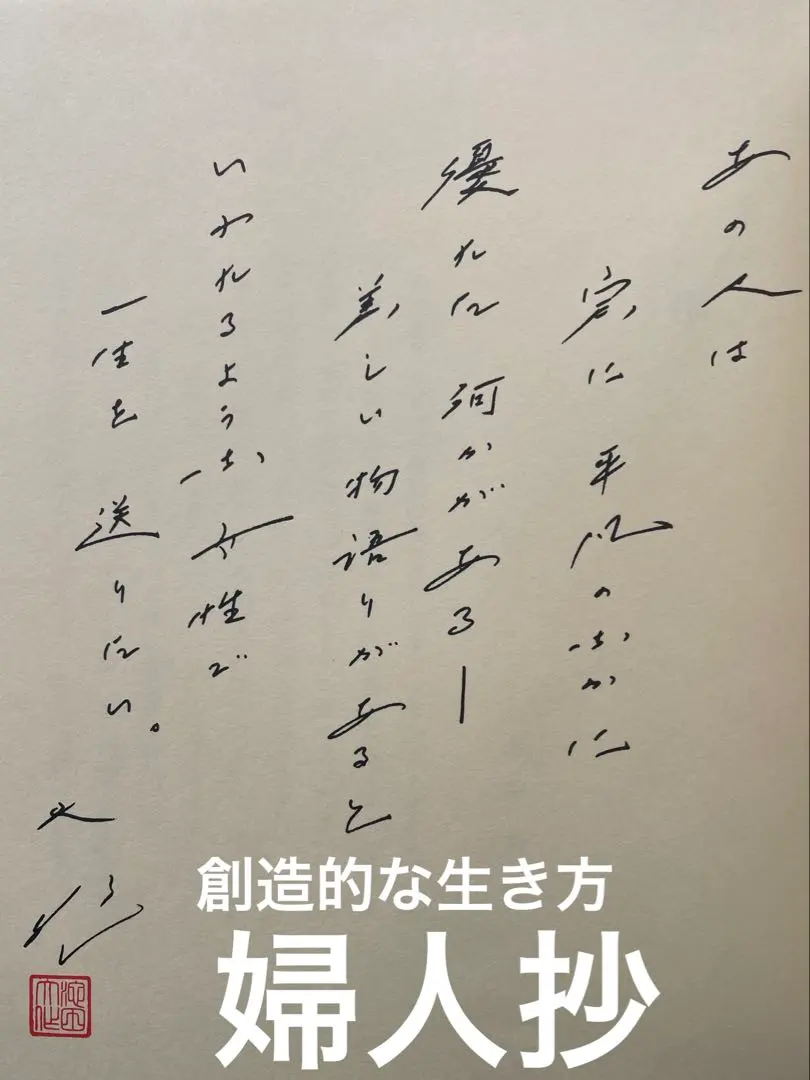 あの人は
実に 平凡のなかに
優れた 何かがある—
美しい物語りがあると
いわれるような 女性で
一生を 送りたい。
大作
創造的な生き方
婦人抄